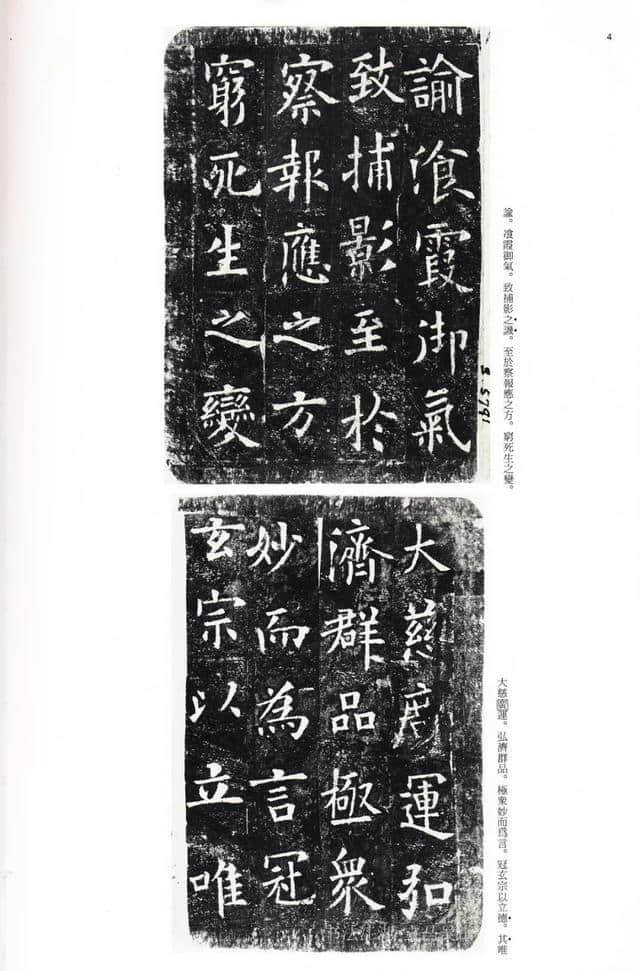 4
諭湌霞御氣
致捕影至於
察報應之方
窮死生之變
S.5791
諭。湌霞御氣。致捕影之譏。至於察報應之方。窮死生之變。
大慈運弘
濟群品極衆
妙而為言冠
玄宗以立唯
大慈運。弘濟群品。極衆妙而爲言。冠玄宗以立德。其唯